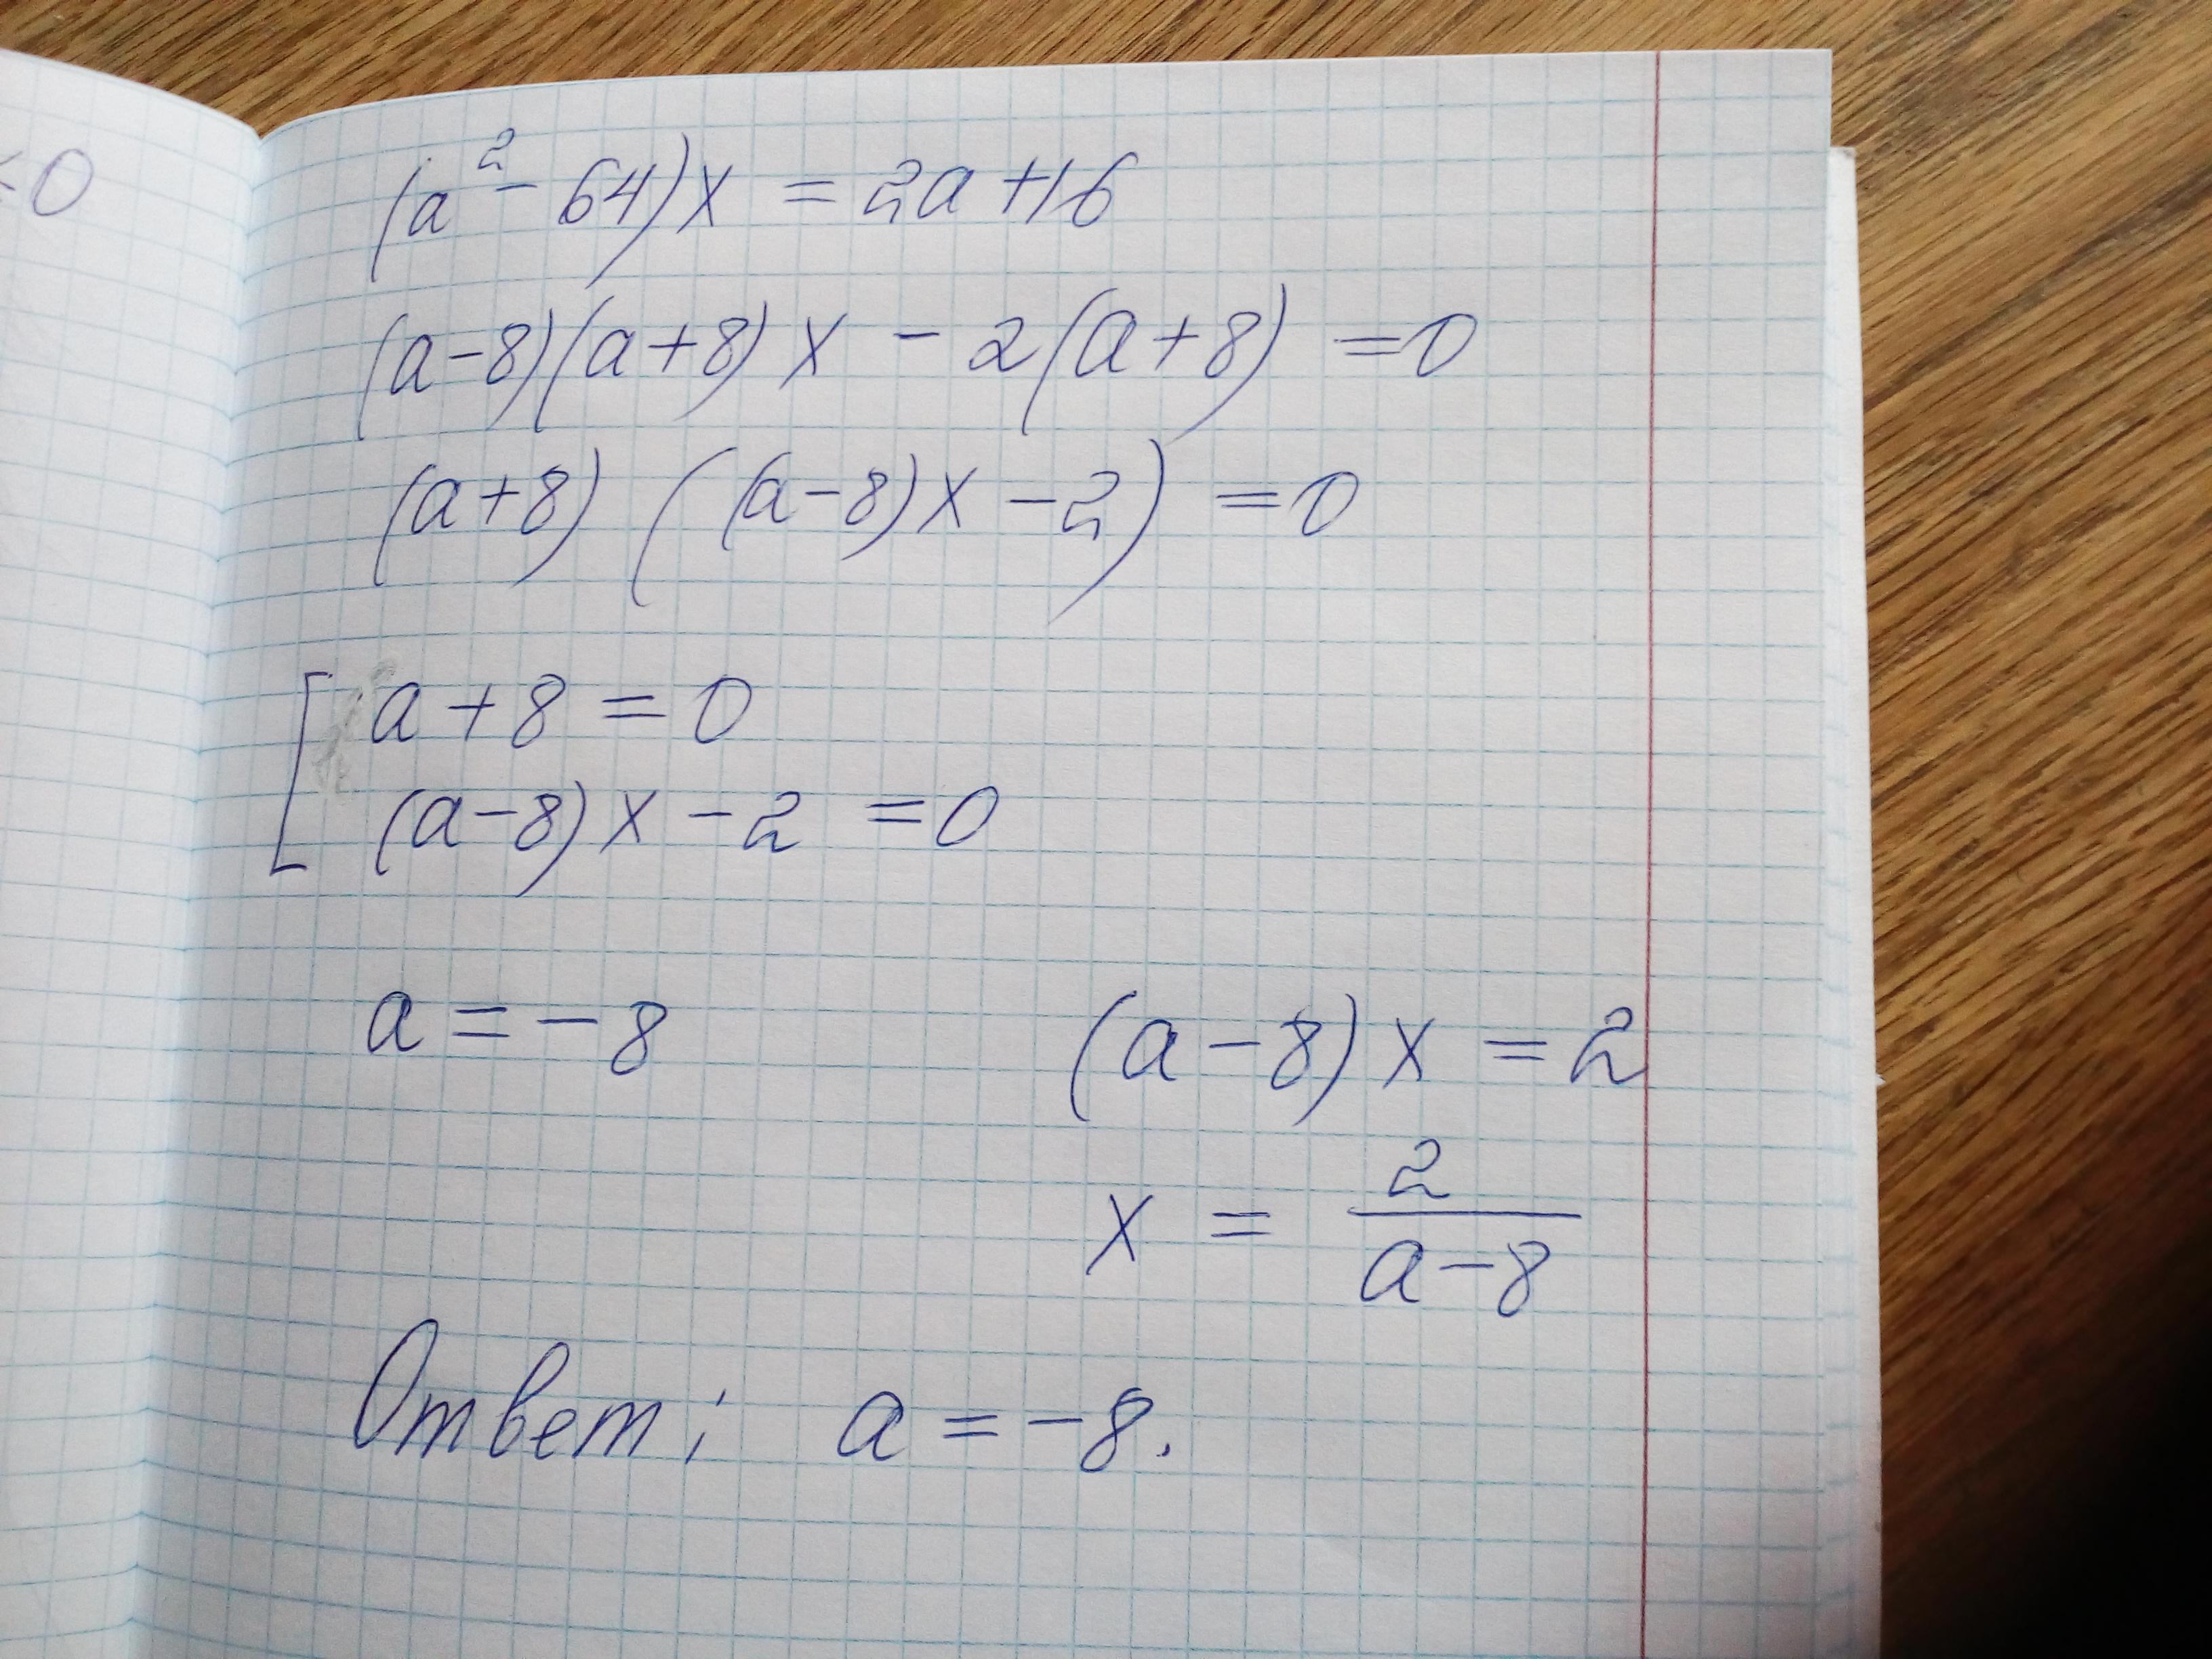 <0
(a² - 64)x = 2a + 16
(a-8)(a+8)x - 2(a+8) = 0
(a+8)((a-8)x - 2) = 0
[ a + 8 = 0
(a-8)x - 2 = 0
a = -8 (a-8)x = 2
x = 2/(a-8)
Ответ: a = -8.